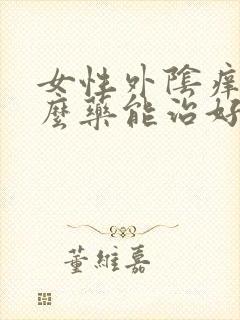 女性外陰癢
麼藥能治好
董維嘉